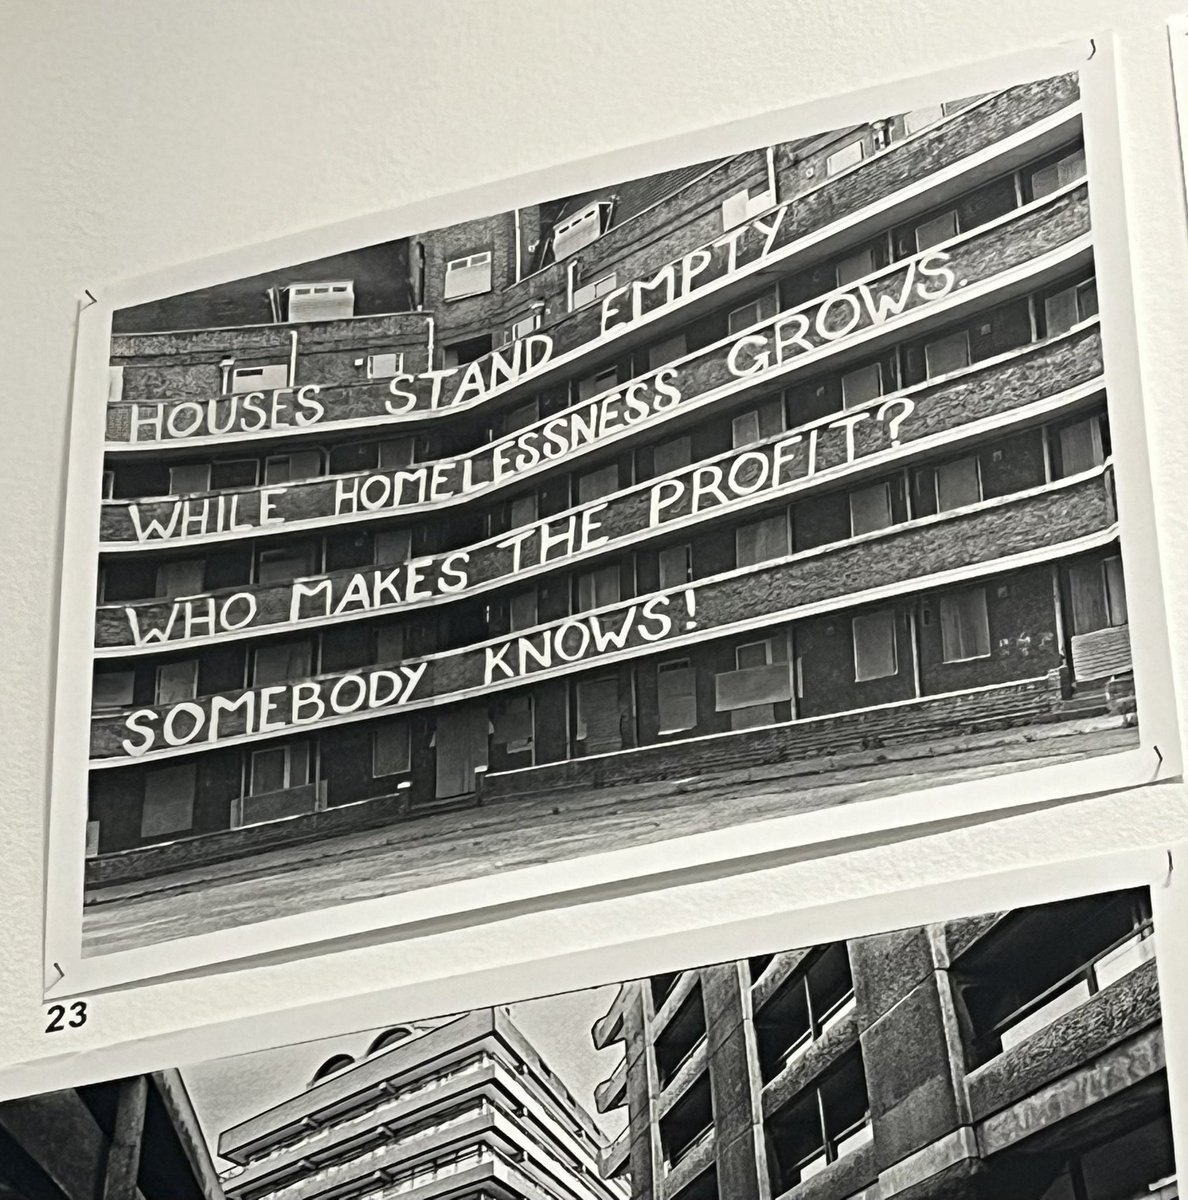 HOUSES STAND EMPTY
WHILE HOMELESSNESS GROWS.
WHO MAKES THE PROFIT?
SOMEBODY KNOWS!
23